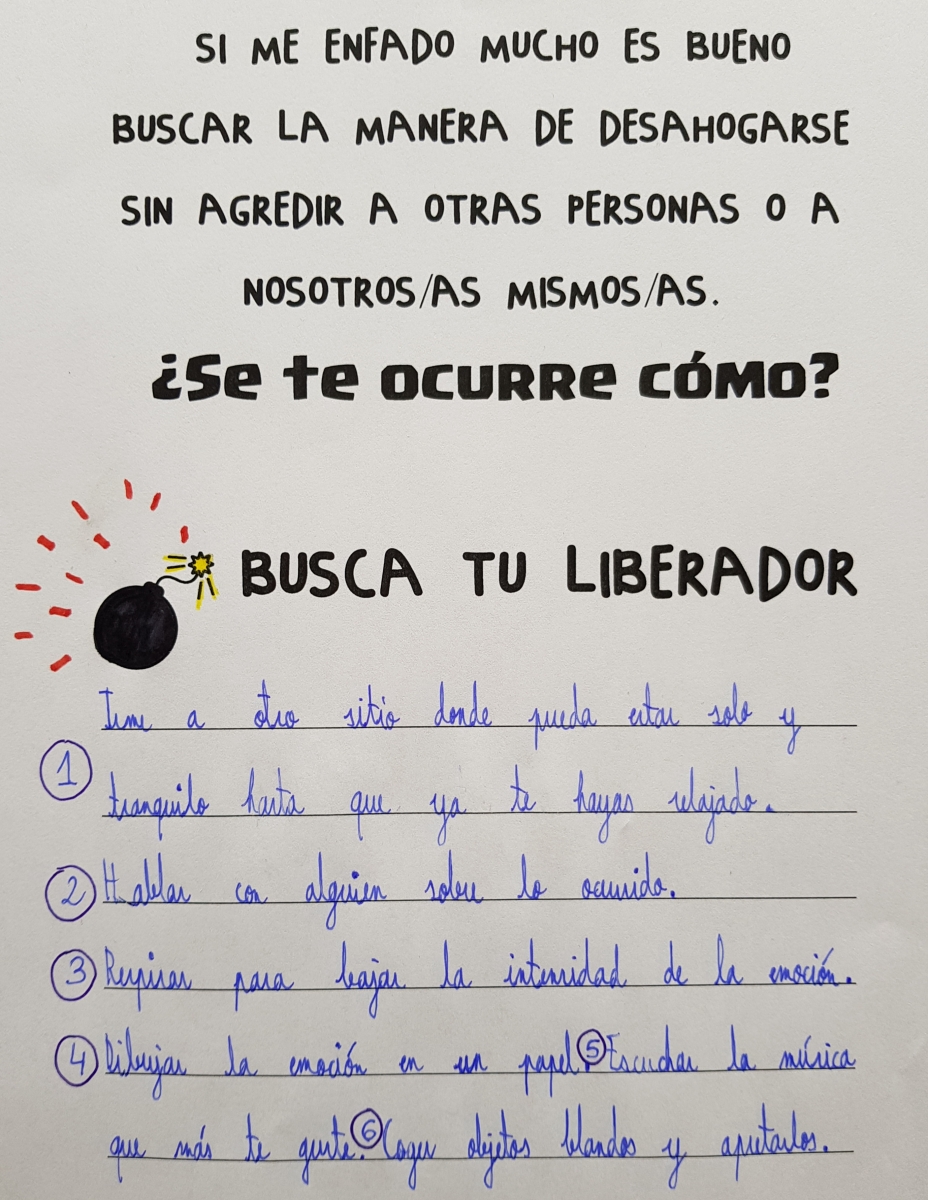 SI ME ENFADO MUCHO ES BUENO
BUSCAR LA MANERA DE DESAHOGARSE
SIN AGREDIR A OTRAS PERSONAS O A
NOSOTROS/AS MISMOS/AS.
¿Se te ocurre cómo?
BUSCA TU LIBERADOR
Irme a otro sitio donde pueda estar solo y
① tranquilo hasta que ya te hayas relajado.
② Hablar con alguien sobre lo ocurrido.
③ Respirar para bajar la intensidad de la emoción.
④ Dibujar la emoción en un papel. ⑤ Escuchar la música
que más te guste. ⑥ Coger objetos blandos y apretarlos.